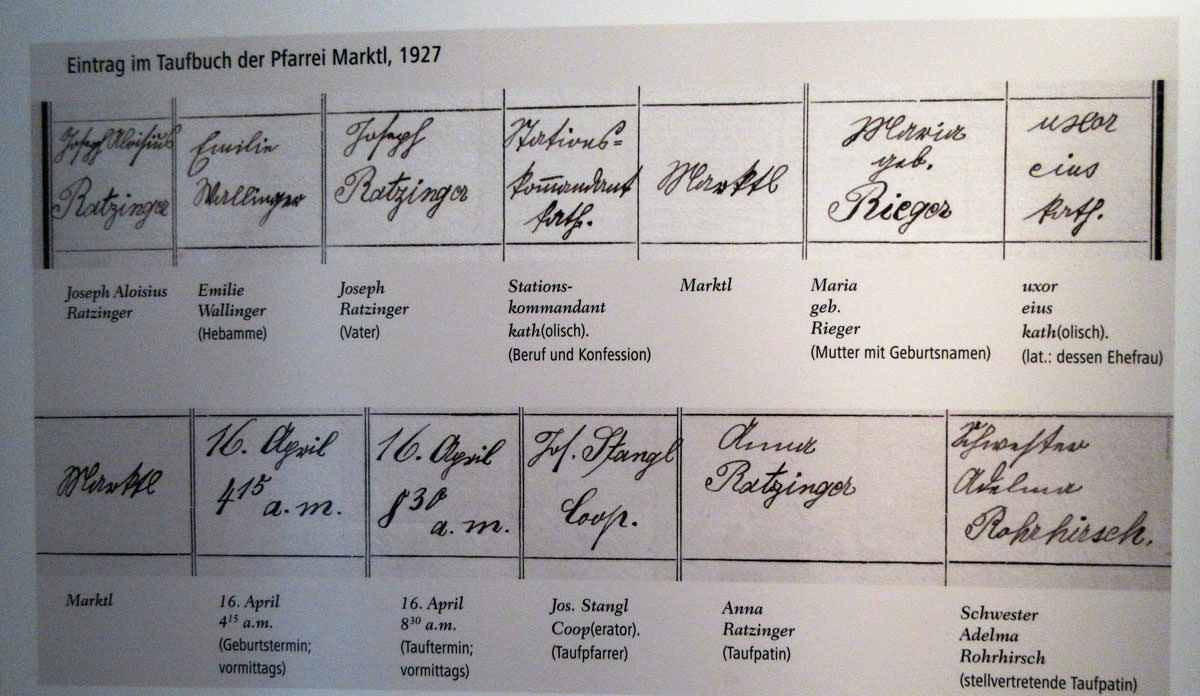 Eintrag im Taufbuch der Pfarrei Marktl, 1927
Joseph Aloisius
Ratzinger
Emilie
Wallinger
Joseph
Ratzinger
Stations=
kommandant
kath.
Marktl
Maria
geb.
Rieger
uxor
eius
kath.
Joseph Aloisius
Ratzinger
Emilie
Wallinger
(Hebamme)
Joseph
Ratzinger
(Vater)
Stations-
kommandant
kath(olisch).
(Beruf und Konfession)
Marktl
Maria
geb.
Rieger
(Mutter mit Geburtsnamen)
uxor
eius
kath(olisch).
(lat.: dessen Ehefrau)
Marktl
16. April
4¹⁵ a.m.
16. April
8³⁰ a.m.
Jos. Stangl
Coop.
Anna
Ratzinger
Schwester
Adelma
Rohrhirsch.
Marktl
16. April
4¹⁵ a.m.
(Geburtstermin;
vormittags)
16. April
8³⁰ a.m.
(Tauftermin;
vormittags)
Jos. Stangl
Coop(erator).
(Taufpfarrer)
Anna
Ratzinger
(Taufpatin)
Schwester
Adelma
Rohrhirsch
(stellvertretende Taufpatin)